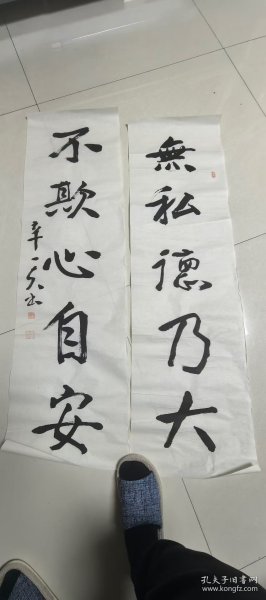 無私德乃大
不欺心自安
孔夫子旧书网
www.kongfz.com